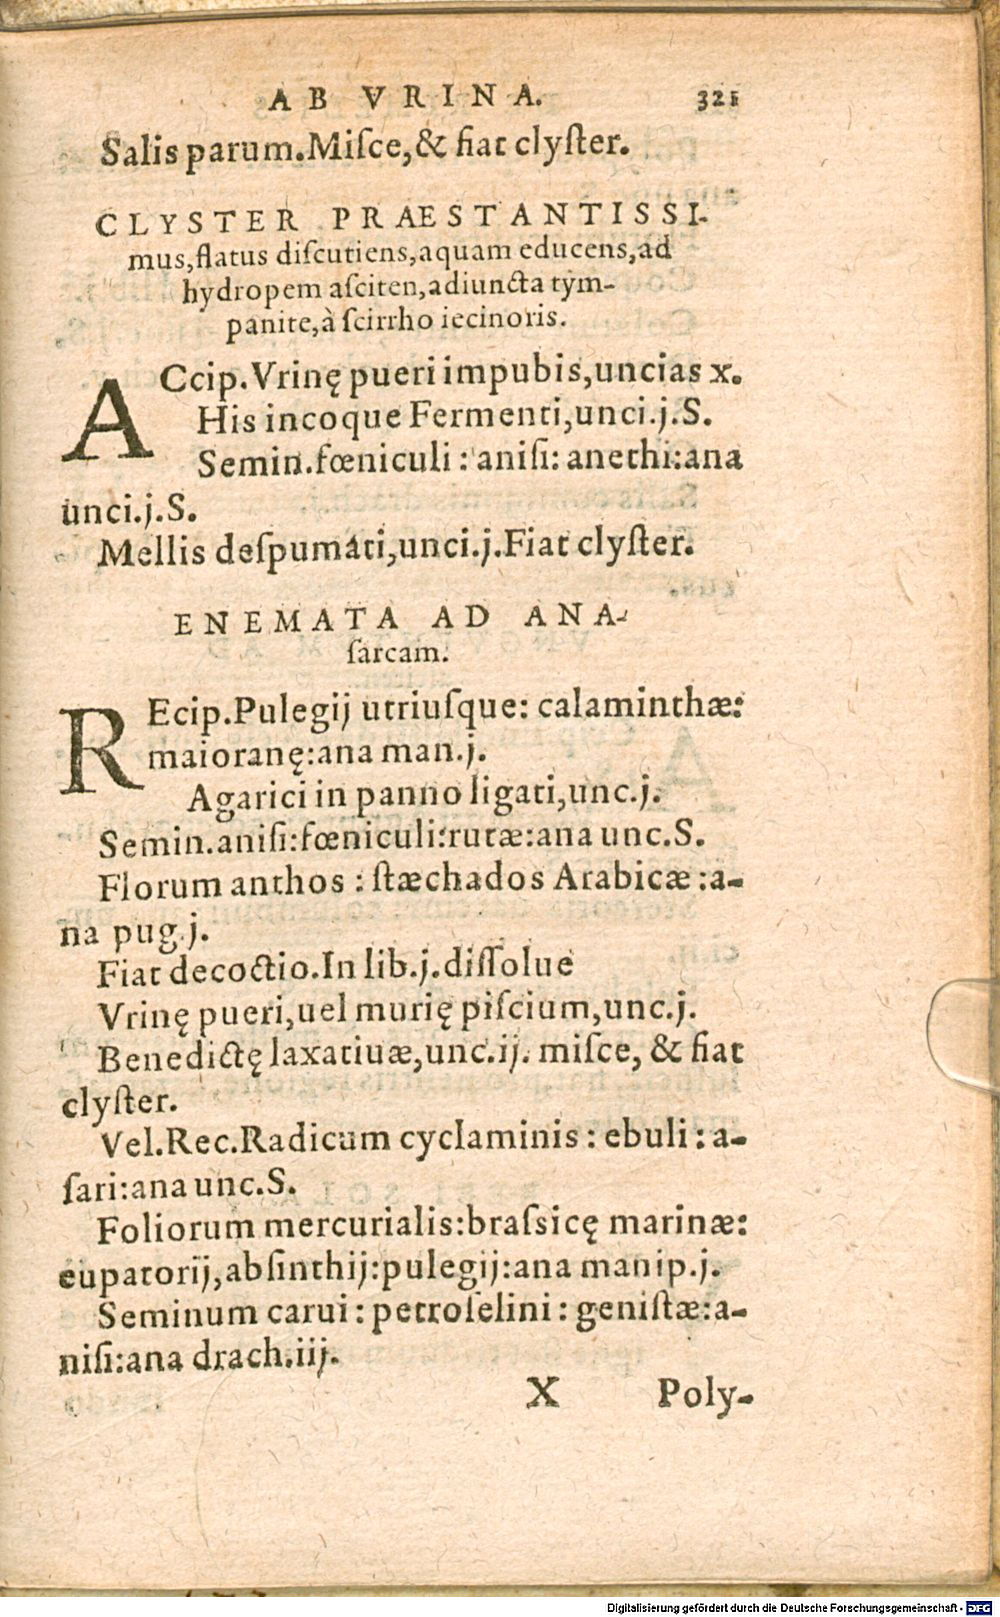 AB VRINA. 321
Salis parum. Miſce, & fiat clyſter.
CLYSTER PRAESTANTISSI-
mus, flatus diſcutiens, aquam educens, ad
hydropem aſciten, adiuncta tym-
panite, à ſcirrho iecinoris.
ACcip. Vrinę pueri impubis, uncias x.
His incoque Fermenti, unci. j. S.
Semin. fœniculi : aniſi: anethi: ana
unci. j. S.
Mellis deſpumati, unci. j. Fiat clyſter.
ENEMATA AD ANA-
ſarcam.
REcip. Pulegij utriuſque: calaminthæ:
maioranę: ana man. j.
Agarici in panno ligati, unc. j.
Semin. aniſi: fœniculi: rutæ: ana unc. S.
Florum anthos : ſtæchados Arabicæ : a-
na pug. j.
Fiat decoctio. In lib. j. diſſolue
Vrinę pueri, uel murię piſcium, unc. j.
Benedictę laxatiuæ, unc. ij. miſce, & fiat
clyſter.
Vel. Rec. Radicum cyclaminis : ebuli : a-
ſari: ana unc. S.
Foliorum mercurialis: braſsicę marinæ:
eupatorij, abſinthij: pulegij: ana manip. j.
Seminum carui : petroſelini : geniſtæ: a-
niſi: ana drach. iij.
X Poly-
Digitalisierung gefördert durch die Deutsche Forschungsgemeinschaft - DFG